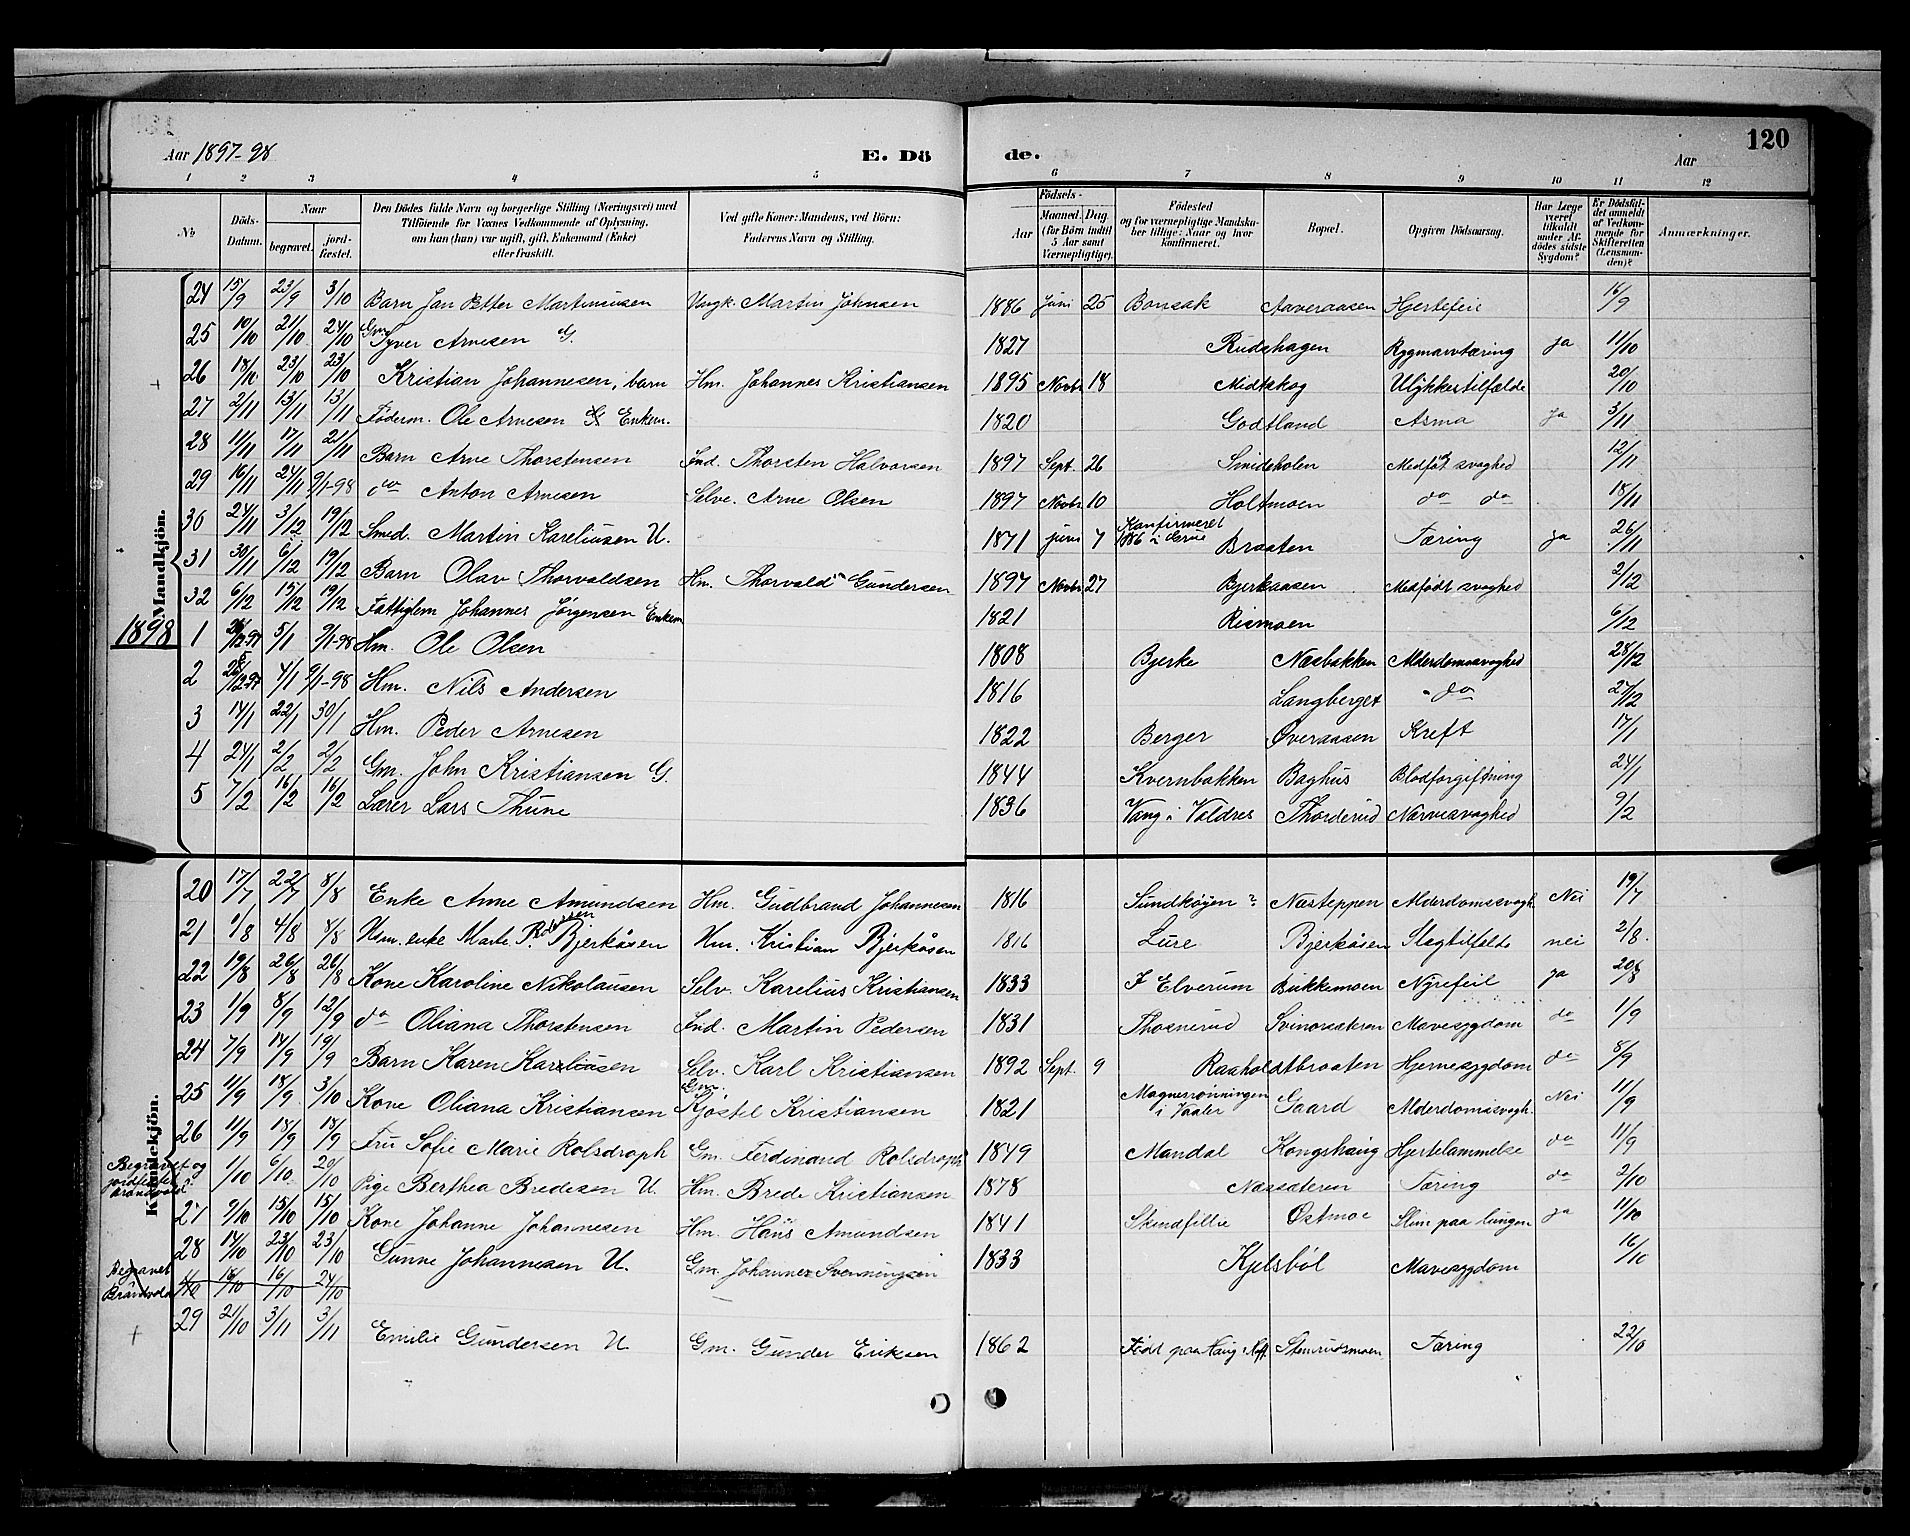 Aar 1897-98 E. Dö de. Aar 120
1 2 3 4 5 6 7 8 9 10 11 12
No Döds-Datum. Naar begravet. jordfæstet. Den Dödes fulde Navn og borgerlige Stilling (Næringsvei) med Tilföiende for Voxnes Vedkommende af Oplysning, om han (hun) var ugift, gift, Enkemand (Enke) eller fraskilt. Ved gifte Koner: Mandens, ved Börn: Faderens Navn og Stilling. Födsels- Aar Maaned. Dag. (for Börn indtil 5 Aar samt Værnepligtige). Födested og for værnepligtige Mandskaber tillige: Naar og hvor konfirmeret. Bopæl. Opgiven Dödsaarsag. Har Læge været tilkaldt under Afdödes sidste Sygdom? Er Dödsfaldet anmeldt af Vedkommende for Skifteretten (Lensmanden)? Anmærkninger.
Mandkjön.
24 15/9 23/9 3/10 Barn Jan Petter Martinusen Ungk. Martin Johnsen 1886 Juni 25 Bonsak Aaveraasen Hjertefeil 16/9
25 10/10 21/10 24/10 Gm. Syver Arnesen G. 1827 Rudshagen Rygmarvtæring ja 11/10
26 18/10 23/10 23/10 Kristian Johannesen, barn Hm. Johannes Kristiansen 1895 Novbr 18 Midtskog Ulykkestilfælde 20/10
27 2/11 13/11 13/11 Föderm. Ole Arnesen Enkem. 1820 Godtland Asma Ja 3/11
28 11/11 17/11 21/11 Barn Arne Thorstensen Ind. Thorsten Halvorsen 1897 Sept. 26 Smidsholen Medföt svaghed 12/11
29 16/11 24/11 9/1-98 do Anton Arnesen Selve. Arne Olsen 1897 Novbr 10 Holtmoen do do 18/11
30 24/11 3/12 19/12 Smed. Martin Kareliusen U. 1871 juni 7 Konfirmeret 1886 i Braaten Tæring ja 26/11
31 30/11 6/12 19/12 Barn Olav Thorvaldsen Hm. Thorvald Gundersen 1897 Novbr 27 Bjerkaasen Medfödt svaghed 2/12
32 6/12 15/12 19/12 Fattiglem Johannes Jørgensen Enkem 1821 Rismoen 6/12
1898 1 5/1 9/1-98 Hm. Ole Olsen 1808 Bjerke Næsbakken Alderdomssvaghed 28/12
2 4/1 9/1-98 Hm. Nils Andersen 1816 Langberget do 27/12
3 14/1 22/1 30/1 Hm. Peder Arnesen 1822 Berger Øveraasen Kreft 17/1
4 24/1 2/2 2/2 Gm. John Kristiansen G. 1844 Kvernbakken Baghus Blodforgiftning 24/1
5 7/2 16/2 16/2 Lærer Lars Thune 1836 Vang i Valdres Thorderud Nervesvaghed 9/2
Kvindekjön.
20 17/7 22/7 8/8 Enke Anne Amundsen Hm. Gudbrand Johannesen 1816 Sundkøjen ? Næsteppen Alderdomssvagh. Nei 19/7
21 1/8 4/8 4/8 Hsm. enke Marte P. Bjerkåsen Hm. Kristian Bjerkåsen 1816 Lure Bjerkåsen Slagtilfelde nei 2/8.
22 19/8 26/8 26/8 Kone Karoline Nikolausen Selv. Karelius Kristiansen 1833 I Elverum Bukkemoen Nyrefeil ja 20/8
23 1/9 8/9 12/9 do Oliana Thorstensen Ind. Martin Pedersen 1831 Thosnerud Svinorsæteren Mavesygdom do 1/9
24 7/9 14/9 19/9 Barn Karen Karliusen Selv. Karl Kristiansen 1892 Sept. 9 Raaholdtbraaten Hjernesygdom do 8/9
25 11/9 18/9 3/10 Kone Oliana Kristiansen Gm. Kjöstel Kristiansen 1821 Magnesrönningen i Vaaler Gaard Alderdomssvagh. Nei 11/9
26 11/9 18/9 18/9 Fru Sofie Marie Rolsdroph Gm. Ferdinand Rolsdroph 1849 Mandal Kongshaug Hjertelammelse do 11/9
Begravet og jordfestet i Brandvold 1/10 6/10 20/10 Pige Berthea Bredesen U. Hm. Brede Kristiansen 1878 Næssæteren Tæring do 2/10
27 9/10 15/10 15/10 Kone Johanne Johannesen Hm. Hans Amundsen 1841 Skindfillie Östmoe Slim paa lungen ja 11/10
28 14/10 23/10 23/10 Gunne Johannesen U. Gm. Johannes Svenningsen 1833 Kjelsböl Mavesygdom 16/10
Begravet Brandvold 16/10 16/10 24/10
29 21/10 3/11 3/11 Emilie Gundersen U. Gm. Gunder Eriksen 1862 Födt paa Haug Stenrudsmoen Tæring 22/10